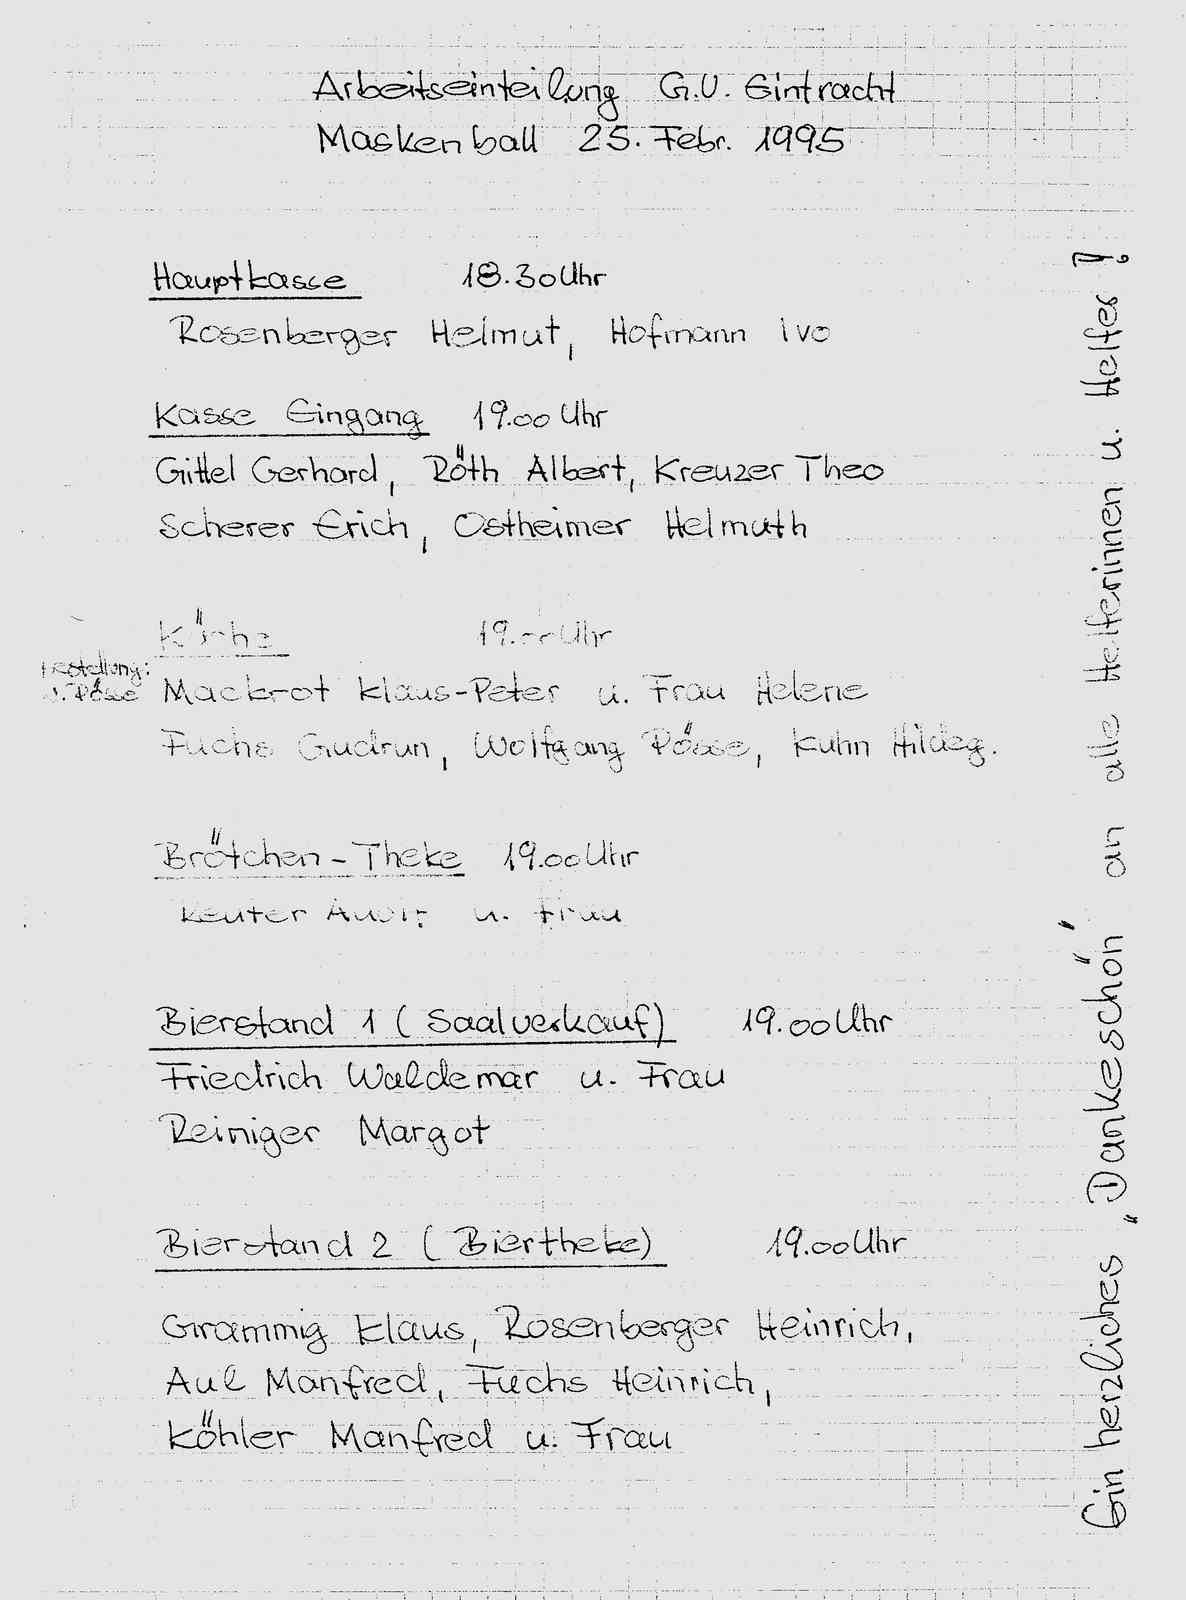 Arbeitseinteilung G.V. Eintracht
Maskenball 25. Febr. 1995
Hauptkasse 18.30 Uhr
Rosenberger Helmut, Hofmann Ivo
Kasse Eingang 19.00 Uhr
Gittel Gerhard, Röth Albert, Kreuzer Theo
Scherer Erich, Ostheimer Helmuth
Küche 19.00 Uhr
Bestellung:
Pösse
Mackrot Klaus-Peter u. Frau Helene
Fuchs Gudrun, Wolfgang Pösse, Kuhn Hildeg.
Brötchen-Theke 19.00 Uhr
u. Frau
Bierstand 1 (Saalverkauf) 19.00 Uhr
Friedrich Waldemar u. Frau
Reiniger Margot
Bierstand 2 (Biertheke) 19.00 Uhr
Grammig Klaus, Rosenberger Heinrich,
Aul Manfred, Fuchs Heinrich,
Köhler Manfred u. Frau
Ein herzliches „Dankeschön" an alle Helferinnen u. Helfer!